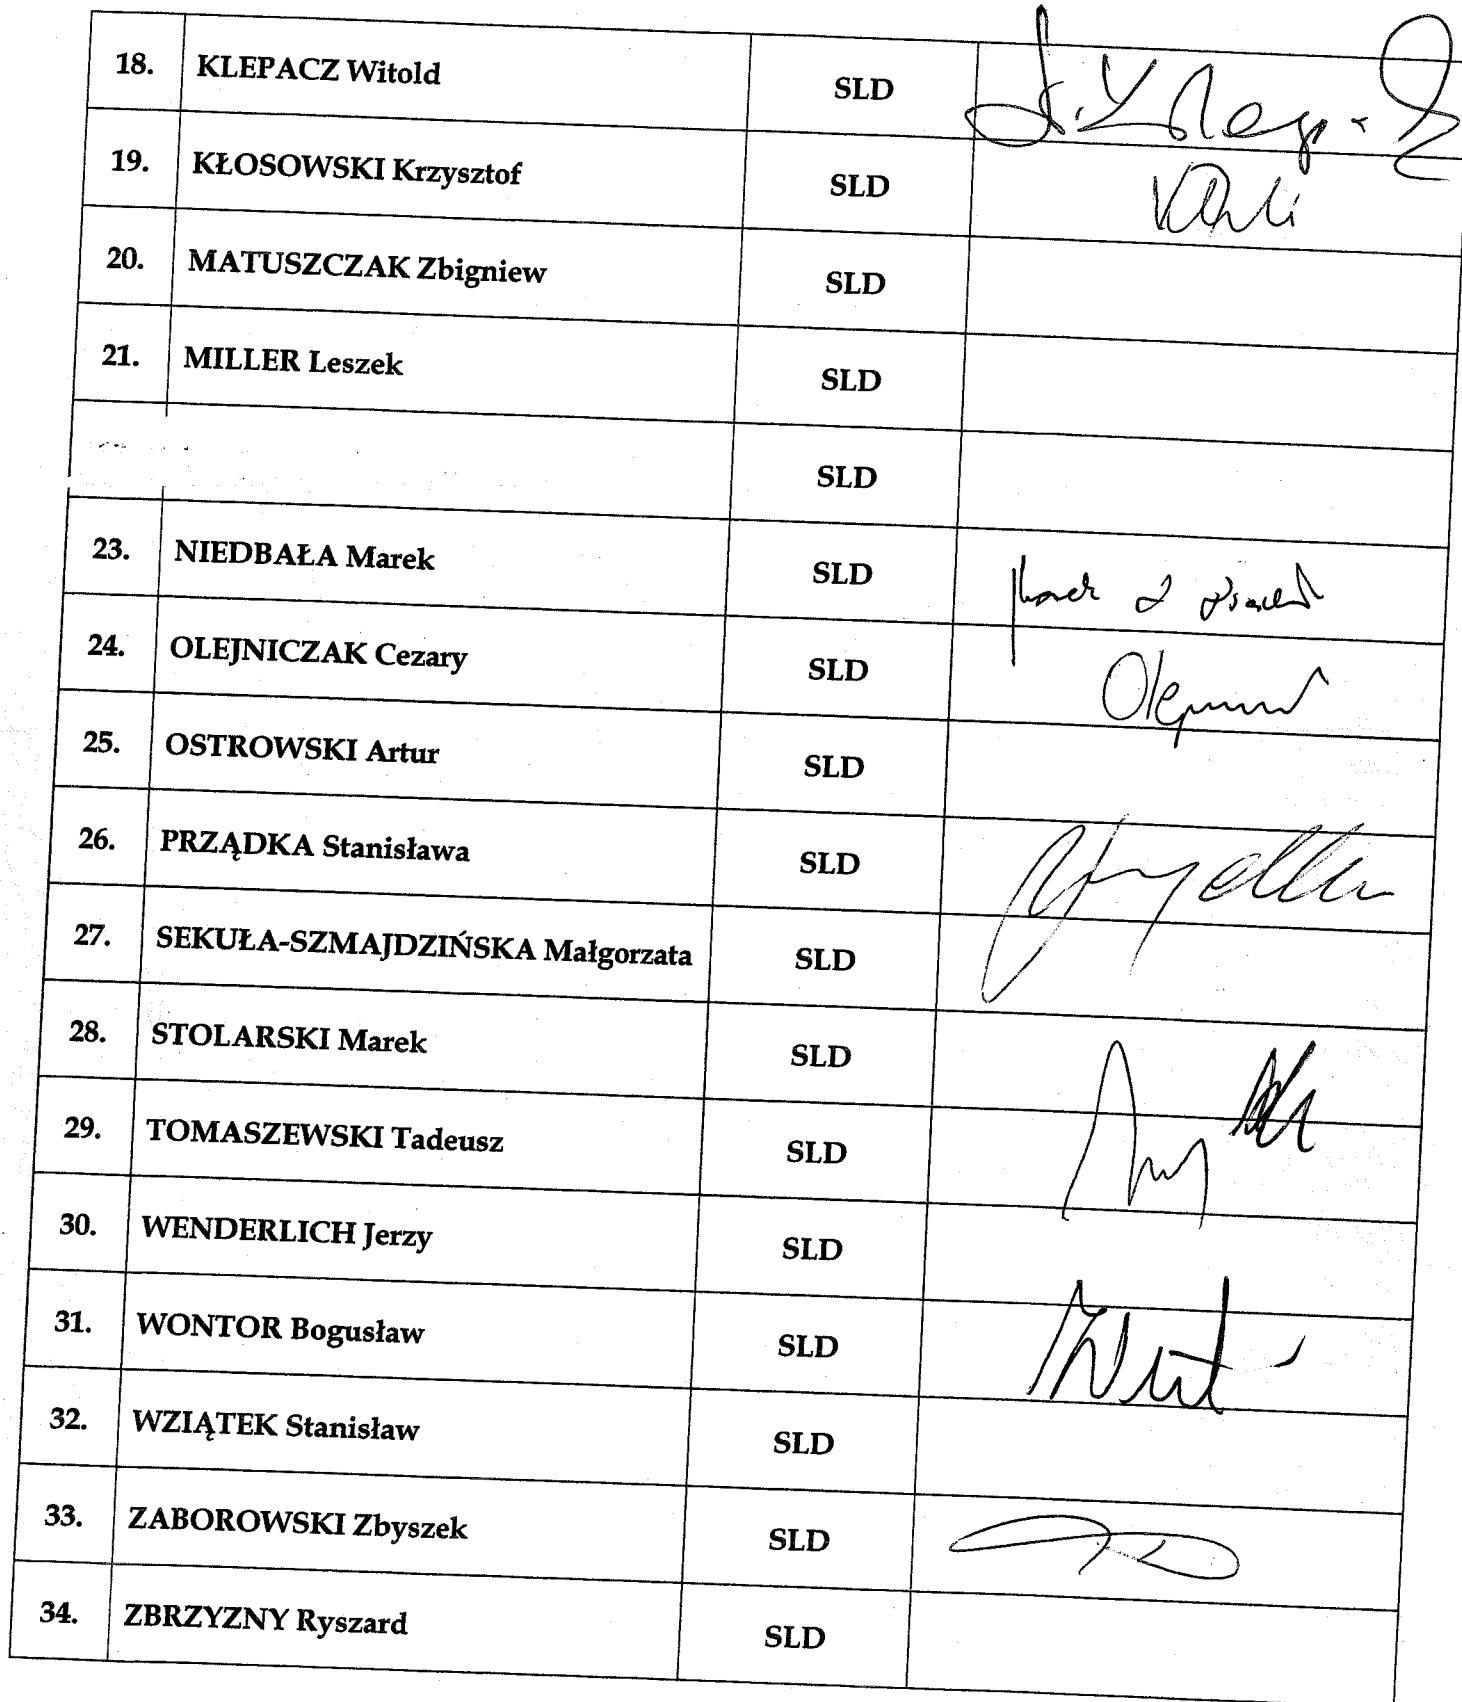 18. KLEPACZ Witold SLD
19. KŁOSOWSKI Krzysztof SLD
20. MATUSZCZAK Zbigniew SLD
21. MILLER Leszek SLD
SLD
23. NIEDBAŁA Marek SLD
24. OLEJNICZAK Cezary SLD
25. OSTROWSKI Artur SLD
26. PRZĄDKA Stanisława SLD
27. SEKUŁA-SZMAJDZIŃSKA Małgorzata SLD
28. STOLARSKI Marek SLD
29. TOMASZEWSKI Tadeusz SLD
30. WENDERLICH Jerzy SLD
31. WONTOR Bogusław SLD
32. WZIĄTEK Stanisław SLD
33. ZABOROWSKI Zbyszek SLD
34. ZBRZYZNY Ryszard SLD